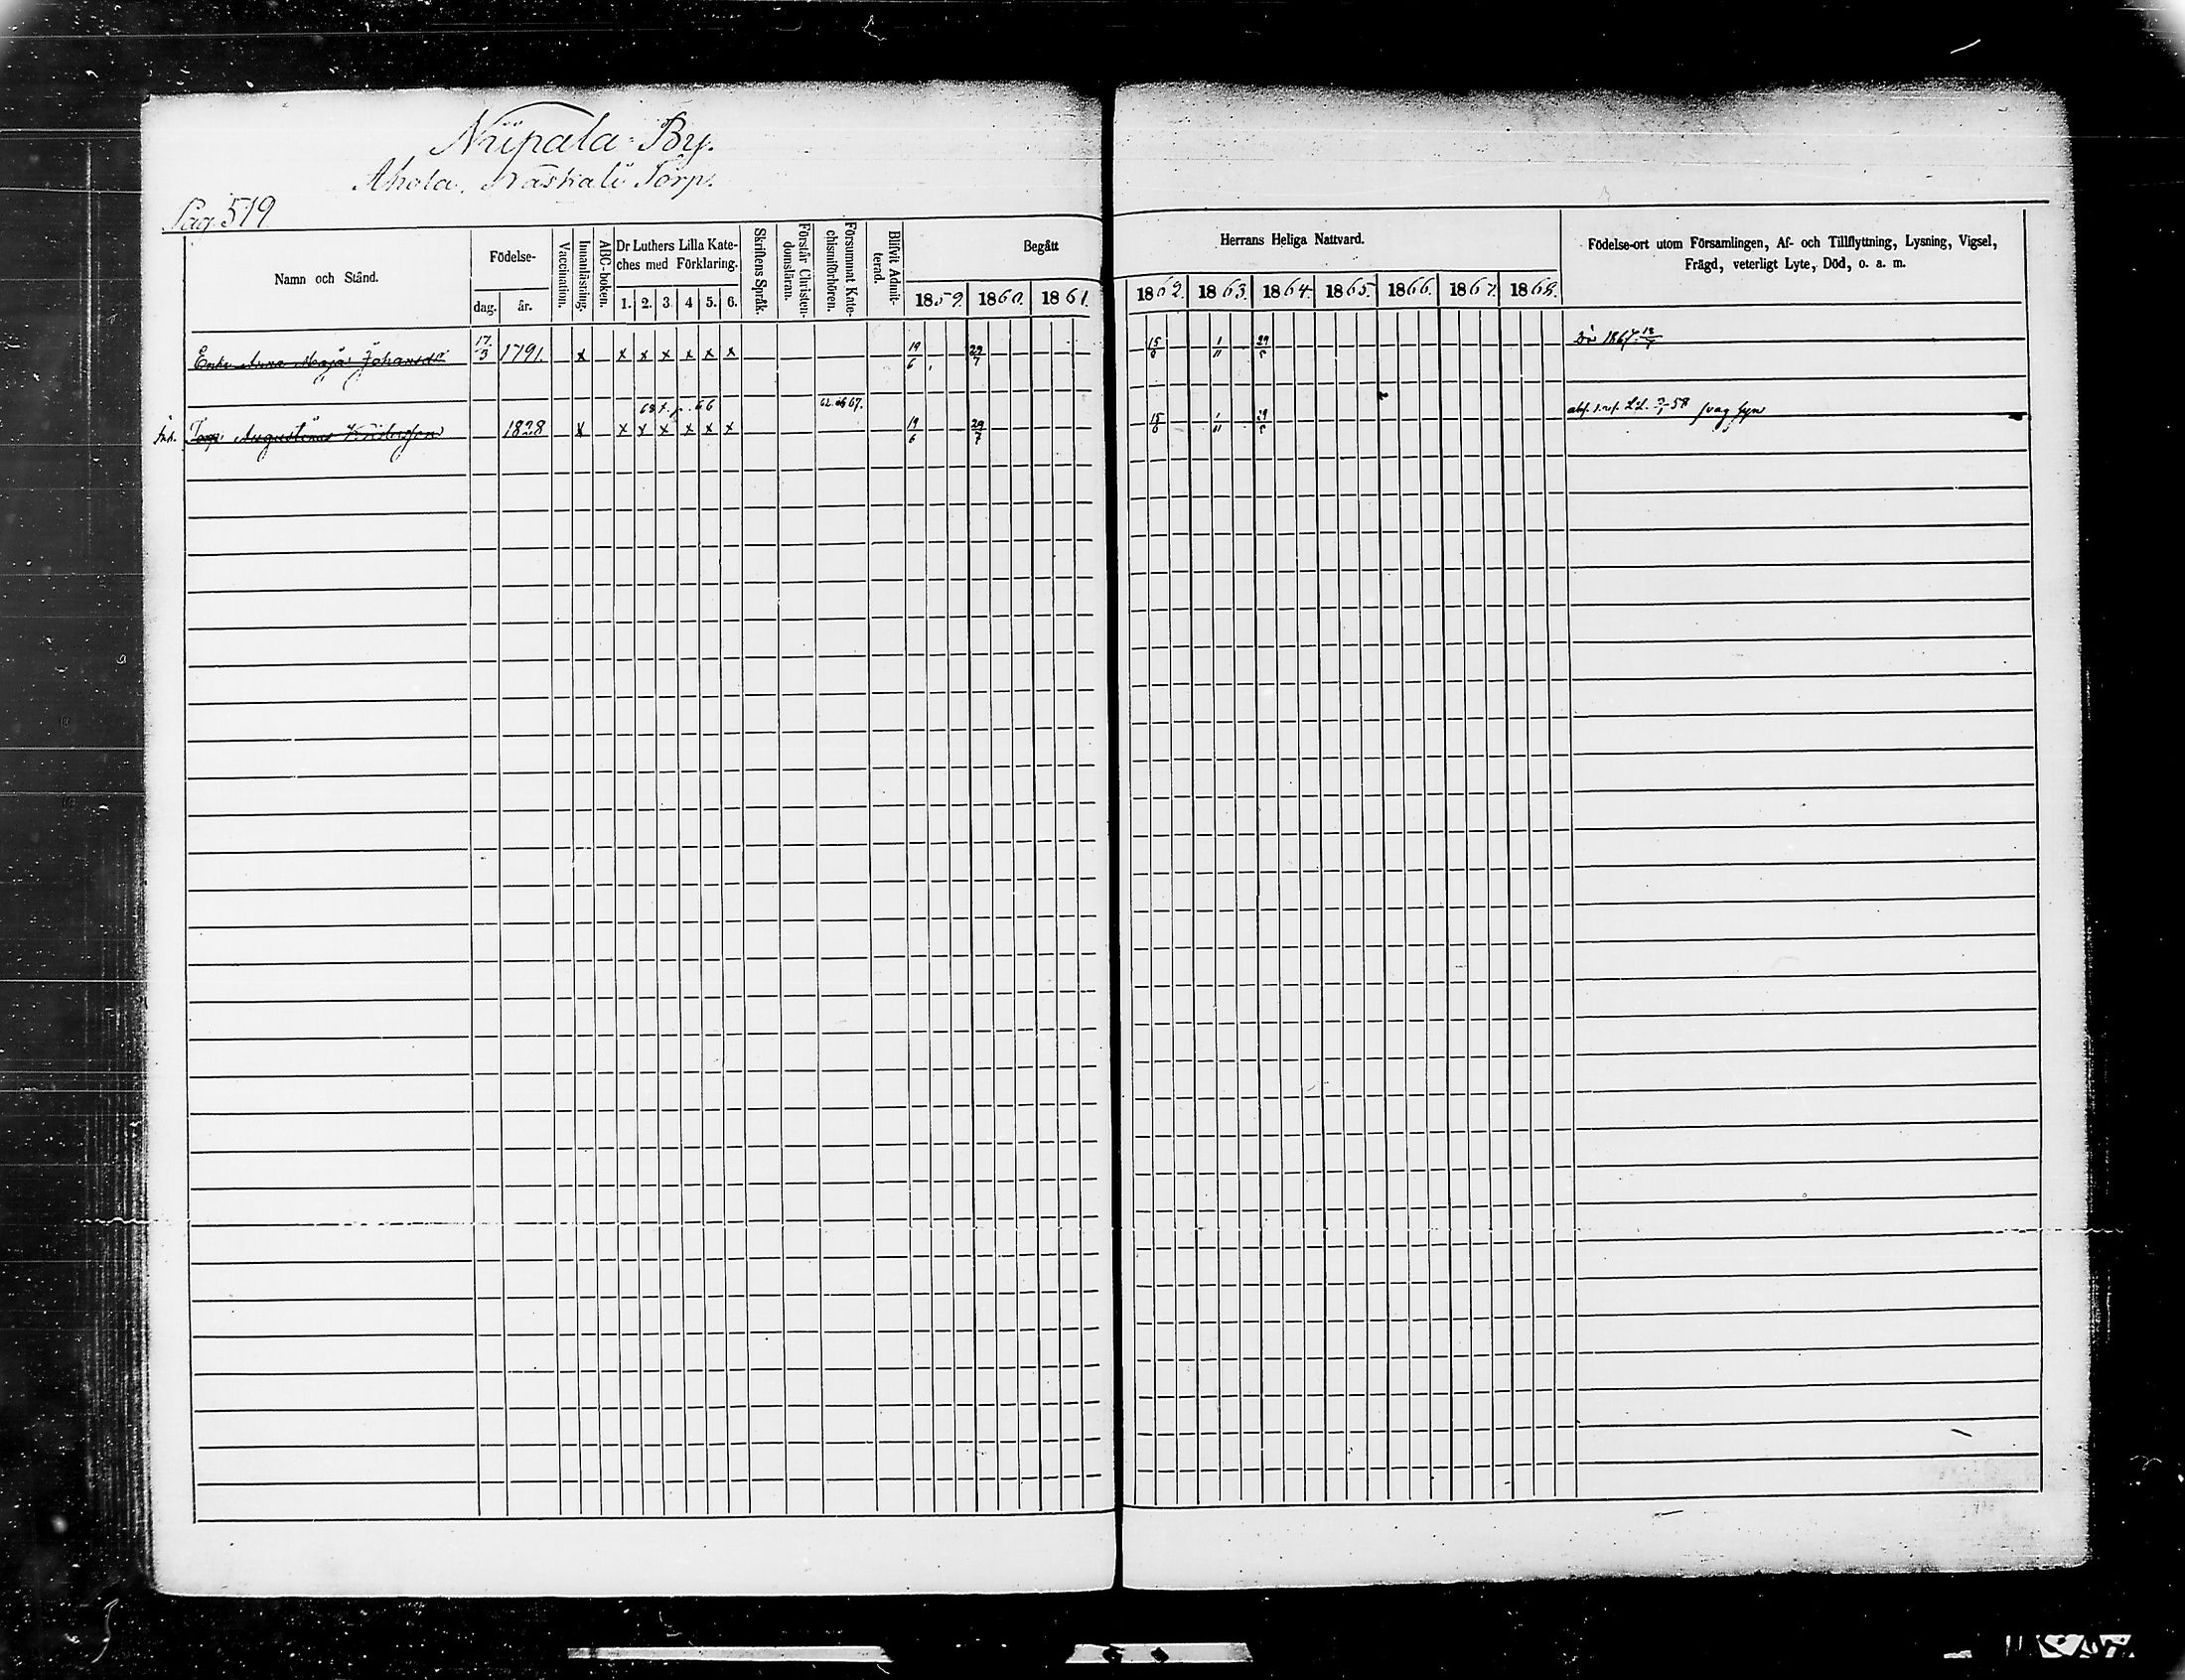 By.
Ahola, Torp.
Pag. 519
Namn och Stånd.
Födelse-
dag. år.
Vaccination.
Innanläsning.
ABC-boken.
Dr Luthers Lilla Kate-
ches med Förklaring.
1. 2. 3 4 5. 6.
Skriftens Språk.
Förstår Christen-
domsläran.
Försummat Kate-
chismiförhören.
Blifvit Admit-
terad.
Begått
1859. 1860. 1861.
Herrans Heliga Nattvard.
1862. 1863. 1864. 1865. 1866. 1867. 1868.
Födelse-ort utom Församlingen, Af- och Tillflyttning, Lysning, Vigsel,
Frägd, veterligt Lyte, Död, o. a. m.
Enka Anna Maja Johansdr 17/3 1791. x x x x x x x 19/6 29/7 15/6 1/11 29/5 Dör 1867
62 67.
Inh. Torp. Augustinus Kristersson 1828 x x x x x x x 19/6 29/7 15/6 1/11 29/5 58 svag syn